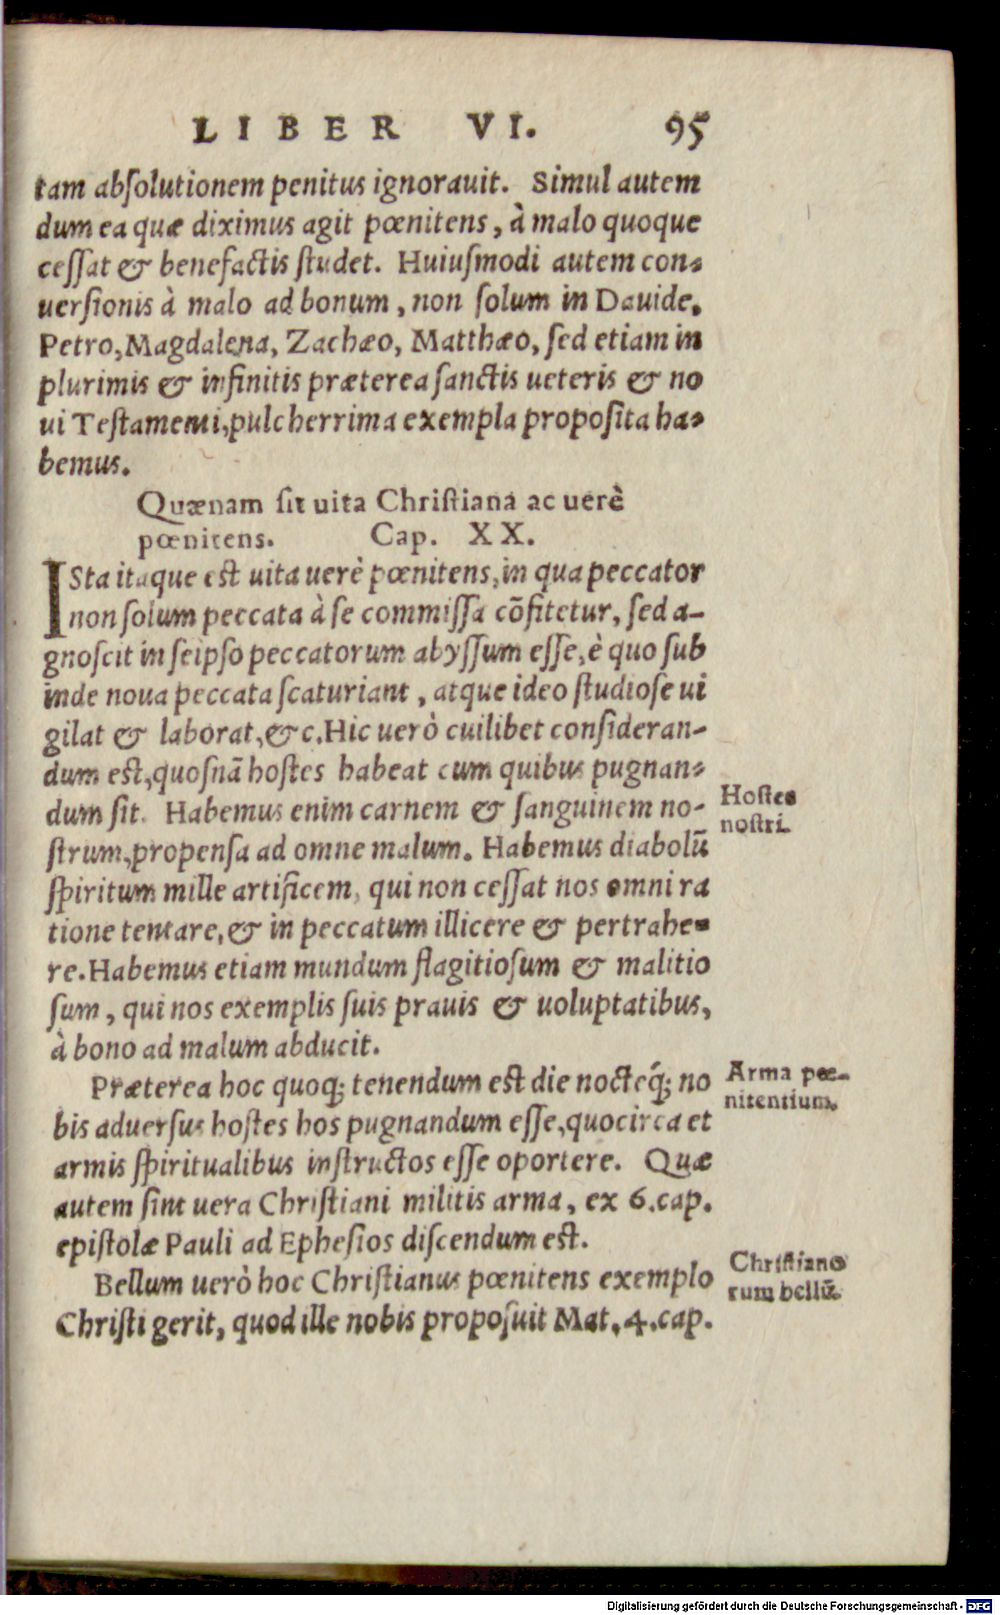 LIBER VI. 95
tam absolutionem penitus ignorauit. Simul autem
dum ea quæ diximus agit pœnitens, à malo quoque
cessat & benefactis studet. Huiusmodi autem con-
uersionis à malo ad bonum, non solum in Dauide,
Petro, Magdalena, Zachæo, Matthæo, sed etiam in
plurimis & infinitis præterea sanctis ueteris & no
ui Testamenti, pulcherrima exempla proposita ha-
bemus.
Quænam sit uita Christiana ac uerè
pœnitens. Cap. XX.
ISta itaque est uita uerè pœnitens, in qua peccator
non solum peccata à se commissa cõfitetur, sed a-
gnoscit in seipso peccatorum abyssum esse, è quo sub
inde noua peccata scaturiant, atque ideo studiose ui
gilat & laborat, &c. Hic uerò cuilibet consideran-
dum est, quosnã hostes habeat cum quibus pugnan-
dum sit. Habemus enim carnem & sanguinem no-
strum, propensa ad omne malum. Habemus diabolũ
spiritum mille artificem, qui non cessat nos omni ra
tione tentare, & in peccatum illicere & pertrahe-
re. Habemus etiam mundum flagitiosum & malitio
sum, qui nos exemplis suis prauis & uoluptatibus,
à bono ad malum abducit.
Hostes
nostri.
Præterea hoc quoq; tenendum est die nocteq́; no
bis aduersus hostes hos pugnandum esse, quocirca et
armis spiritualibus instructos esse oportere. Quæ
autem sint uera Christiani militis arma, ex 6. cap.
epistolæ Pauli ad Ephesios discendum est.
Arma pœ-
nitentium.
Bellum uerò hoc Christianus pœnitens exemplo
Christi gerit, quod ille nobis proposuit Mat. 4. cap.
Christiano
rum bellũ.
Digitalisierung gefördert durch die Deutsche Forschungsgemeinschaft - DFG